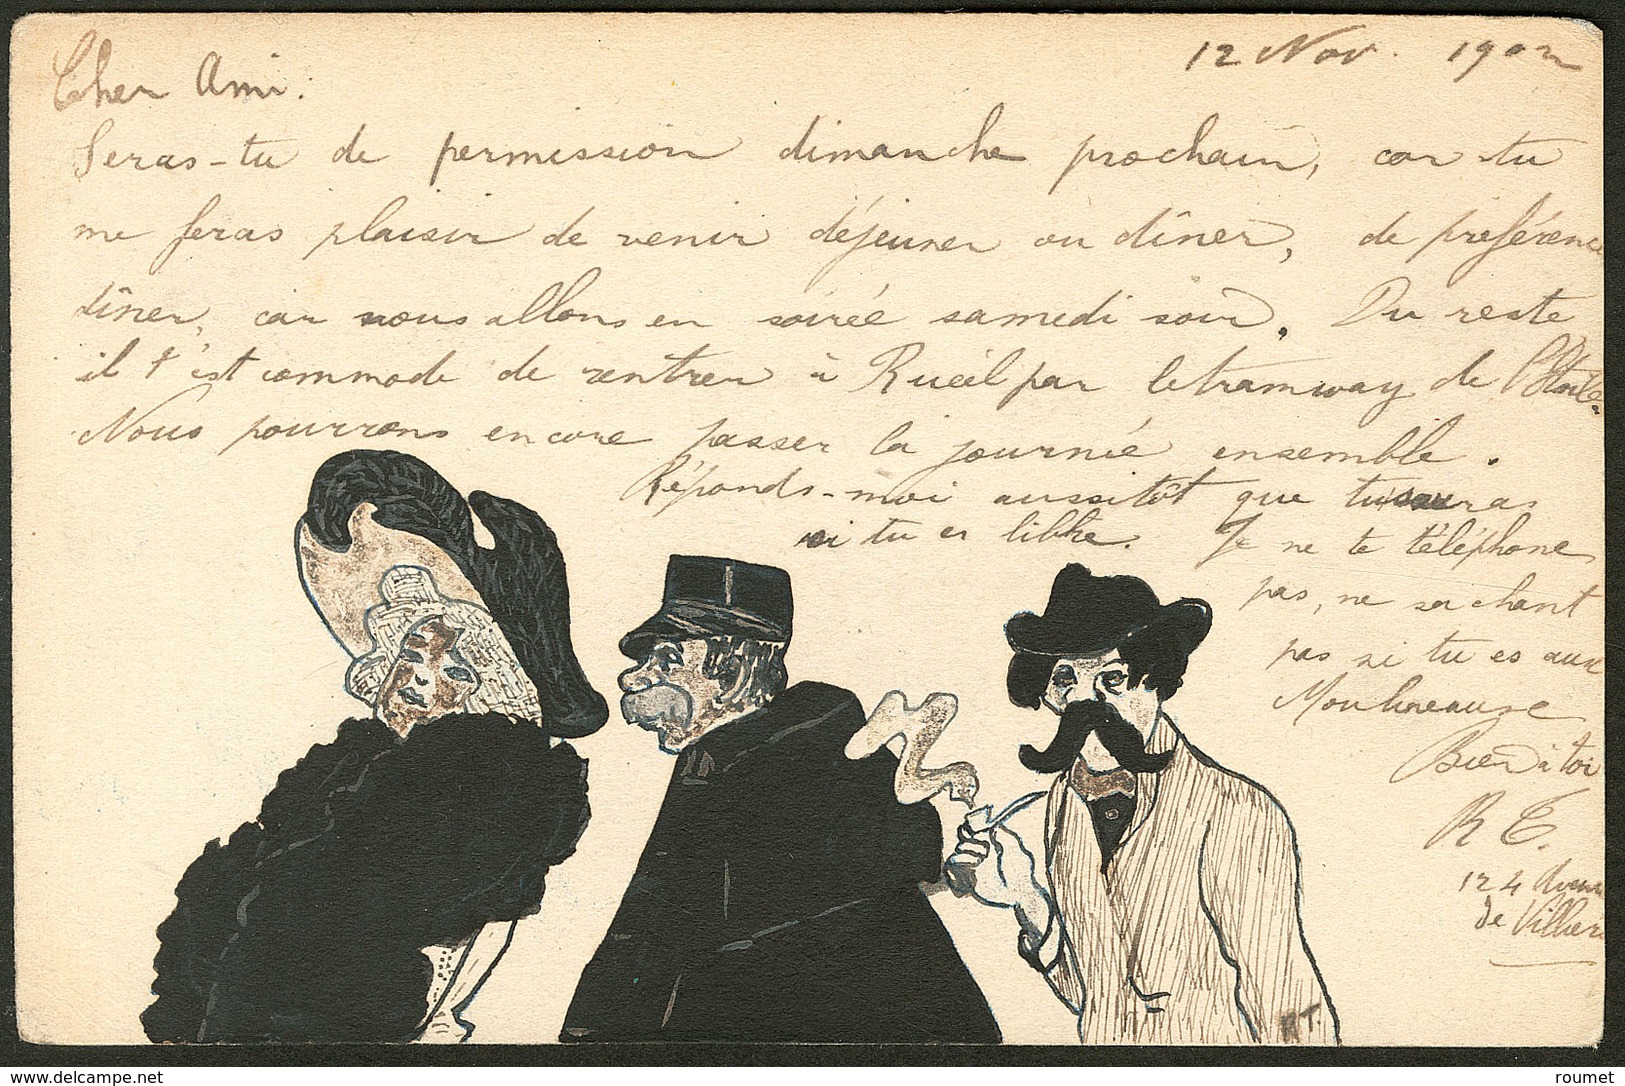 12 Nov. 1902
Cher Ami:
Seras-tu de permission dimanche prochain, car tu
me feras plaisir de venir déjeuner ou dîner, de préférence
dîner, car nous allons en soirée samedi soir. Du reste
il t'est commode de rentrer à Rueil par le tramway de l'Etoile.
Nous pourrons encore passer la journée ensemble.
Réponds-moi aussitôt que tu sauras
si tu es libre. Je ne te téléphone
pas, ne sachant
pas si tu es aux
Moulineaux
Bien à toi
R T.
124 Avenue
de Villiers
RT.
delcampe.net
roumet